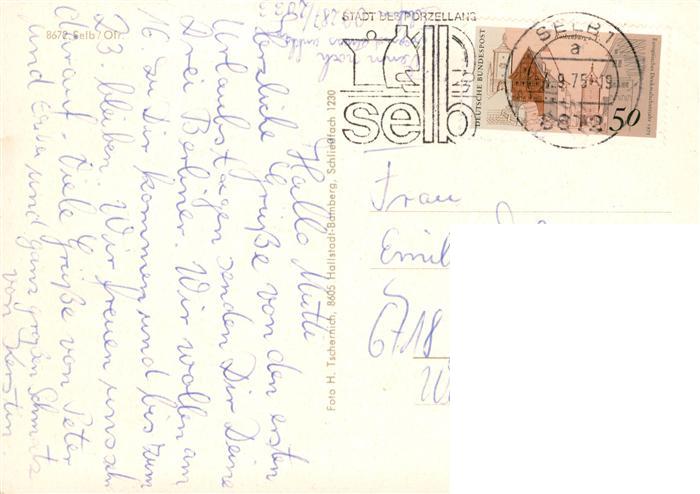 8672 Selb / Ofr.
Hallo Mutti
Herzliche Grüße von den ersten
Urlaubstagen senden Dir Deine
Drei Berliner. Wir wollen am
16. zu Dir kommen und bis zum
23. bleiben. Wir freuen uns sehr
darauf. Viele Grüße von Peter
und und ganz großen Schmatz
von Kerstin.
Foto H. Tschernich, 8605 Hallstadt-Bamberg, Schließfach 1230
STADT DES PORZELLANS
selb
SELB 1
a
.9.75-19
8672
DEUTSCHE BUNDESPOST
50
Frau
Emil
6718